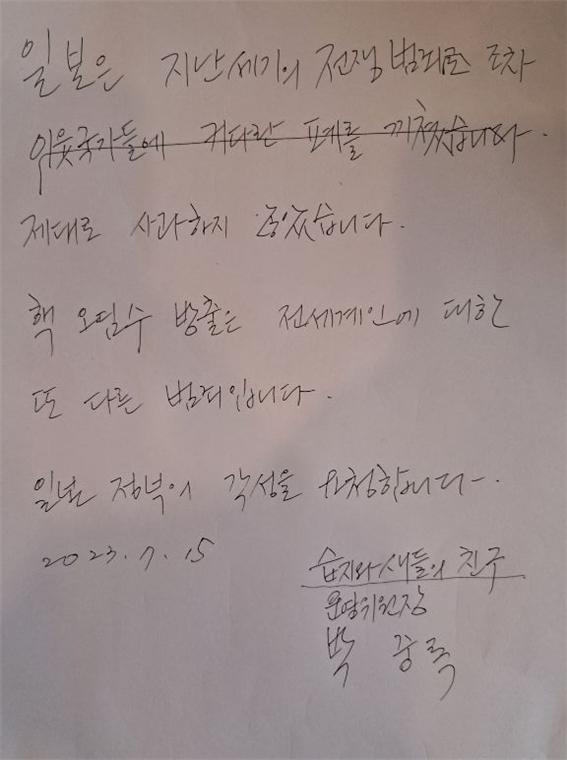 일본은 지난세기의 전쟁 범죄로 조차
이웃국가들에 커다란 폐해를 끼쳤습니다.
제대로 사과하지 않았습니다.
핵 오염수 방출은 전세계인에 대한
또 다른 범죄입니다.
일본 정부의 각성을 요청합니다.
2023.7.15
습지와새들의 친구
운영위원장
박중록